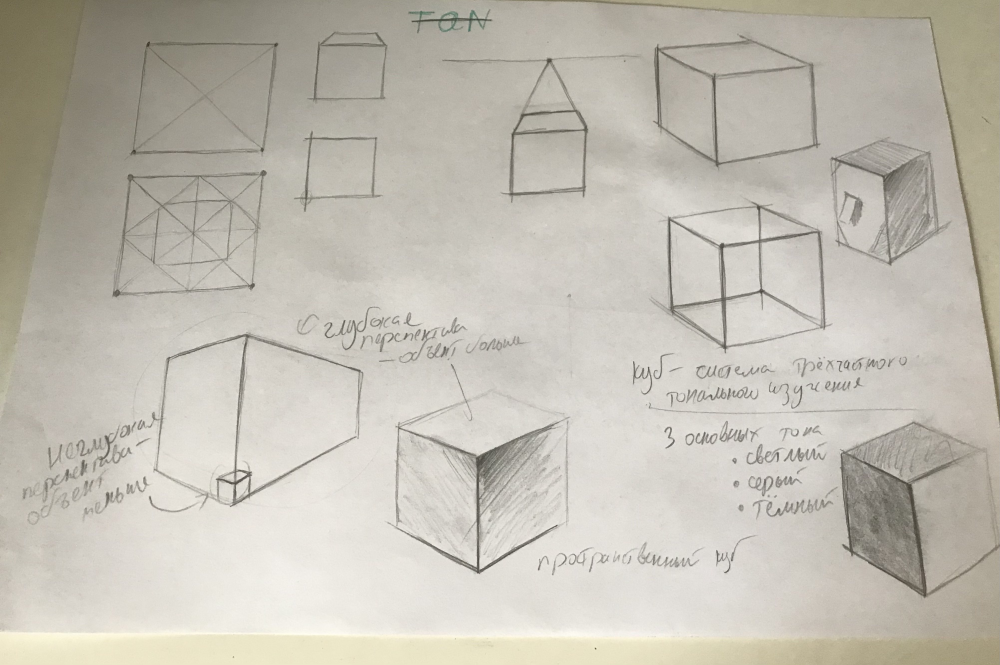 TON
глубокая
перспектива
– объект больше
Неглубокая
перспектива –
объект
меньше
куб – система трёхчастного
тонального изучения
3 основных тона
• светлый
• серый
• тёмный
пространственный куб